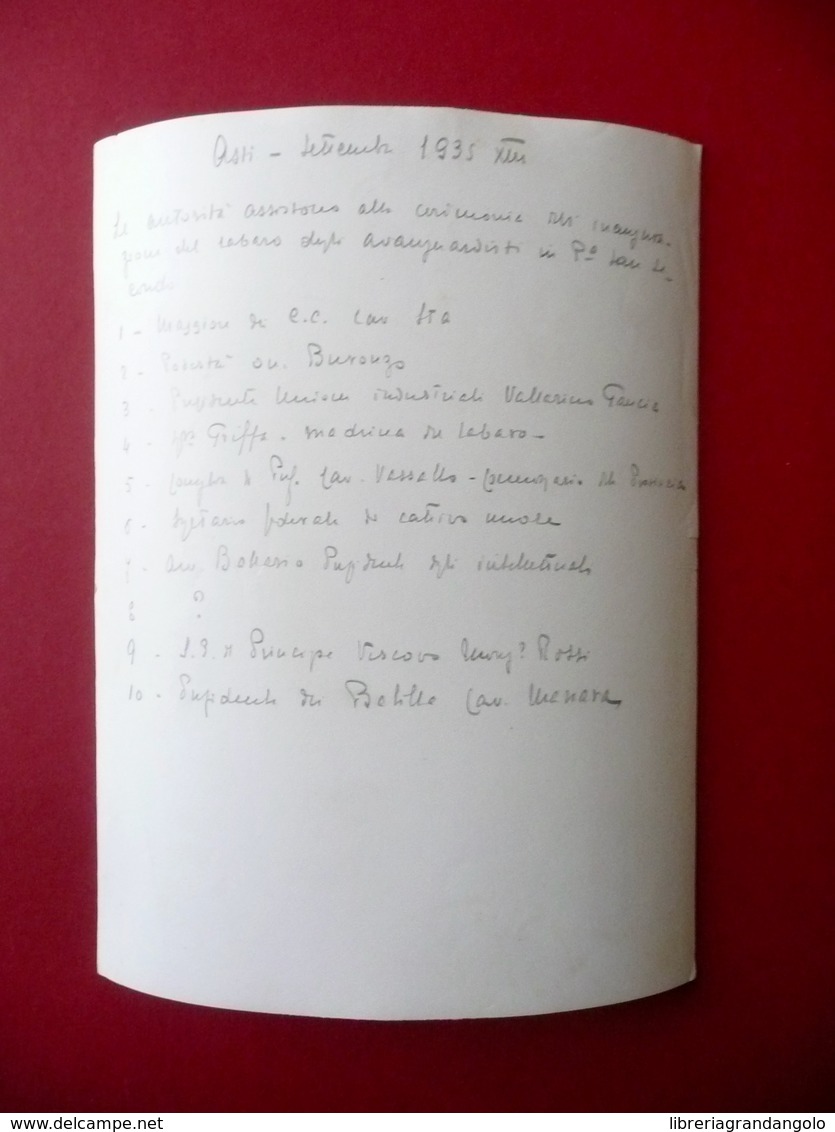 Asti - Settembre 1935 XIII
Le autorità assistono alla cerimonia dell' inaugura-
zione del labaro degli avanguardisti in P.a San Se-
condo
1 - Maggiore dei C.C. Cav.
2 - Podestà on. Buronzo
3 - Presidente Unione industriali Vallarino Gancia
4 - Griffa - madrina del labaro -
5 - Cav. Vassallo -
6 - Segretario federale di cattivo umore
7 - Avv. Presidente degli intellettuali
8 ?
9 - S.E. il Principe Vescovo Mons. Rossi
10 - Presidente dei Balilla Cav.
www.delcampe.net
libreriagrandangolo